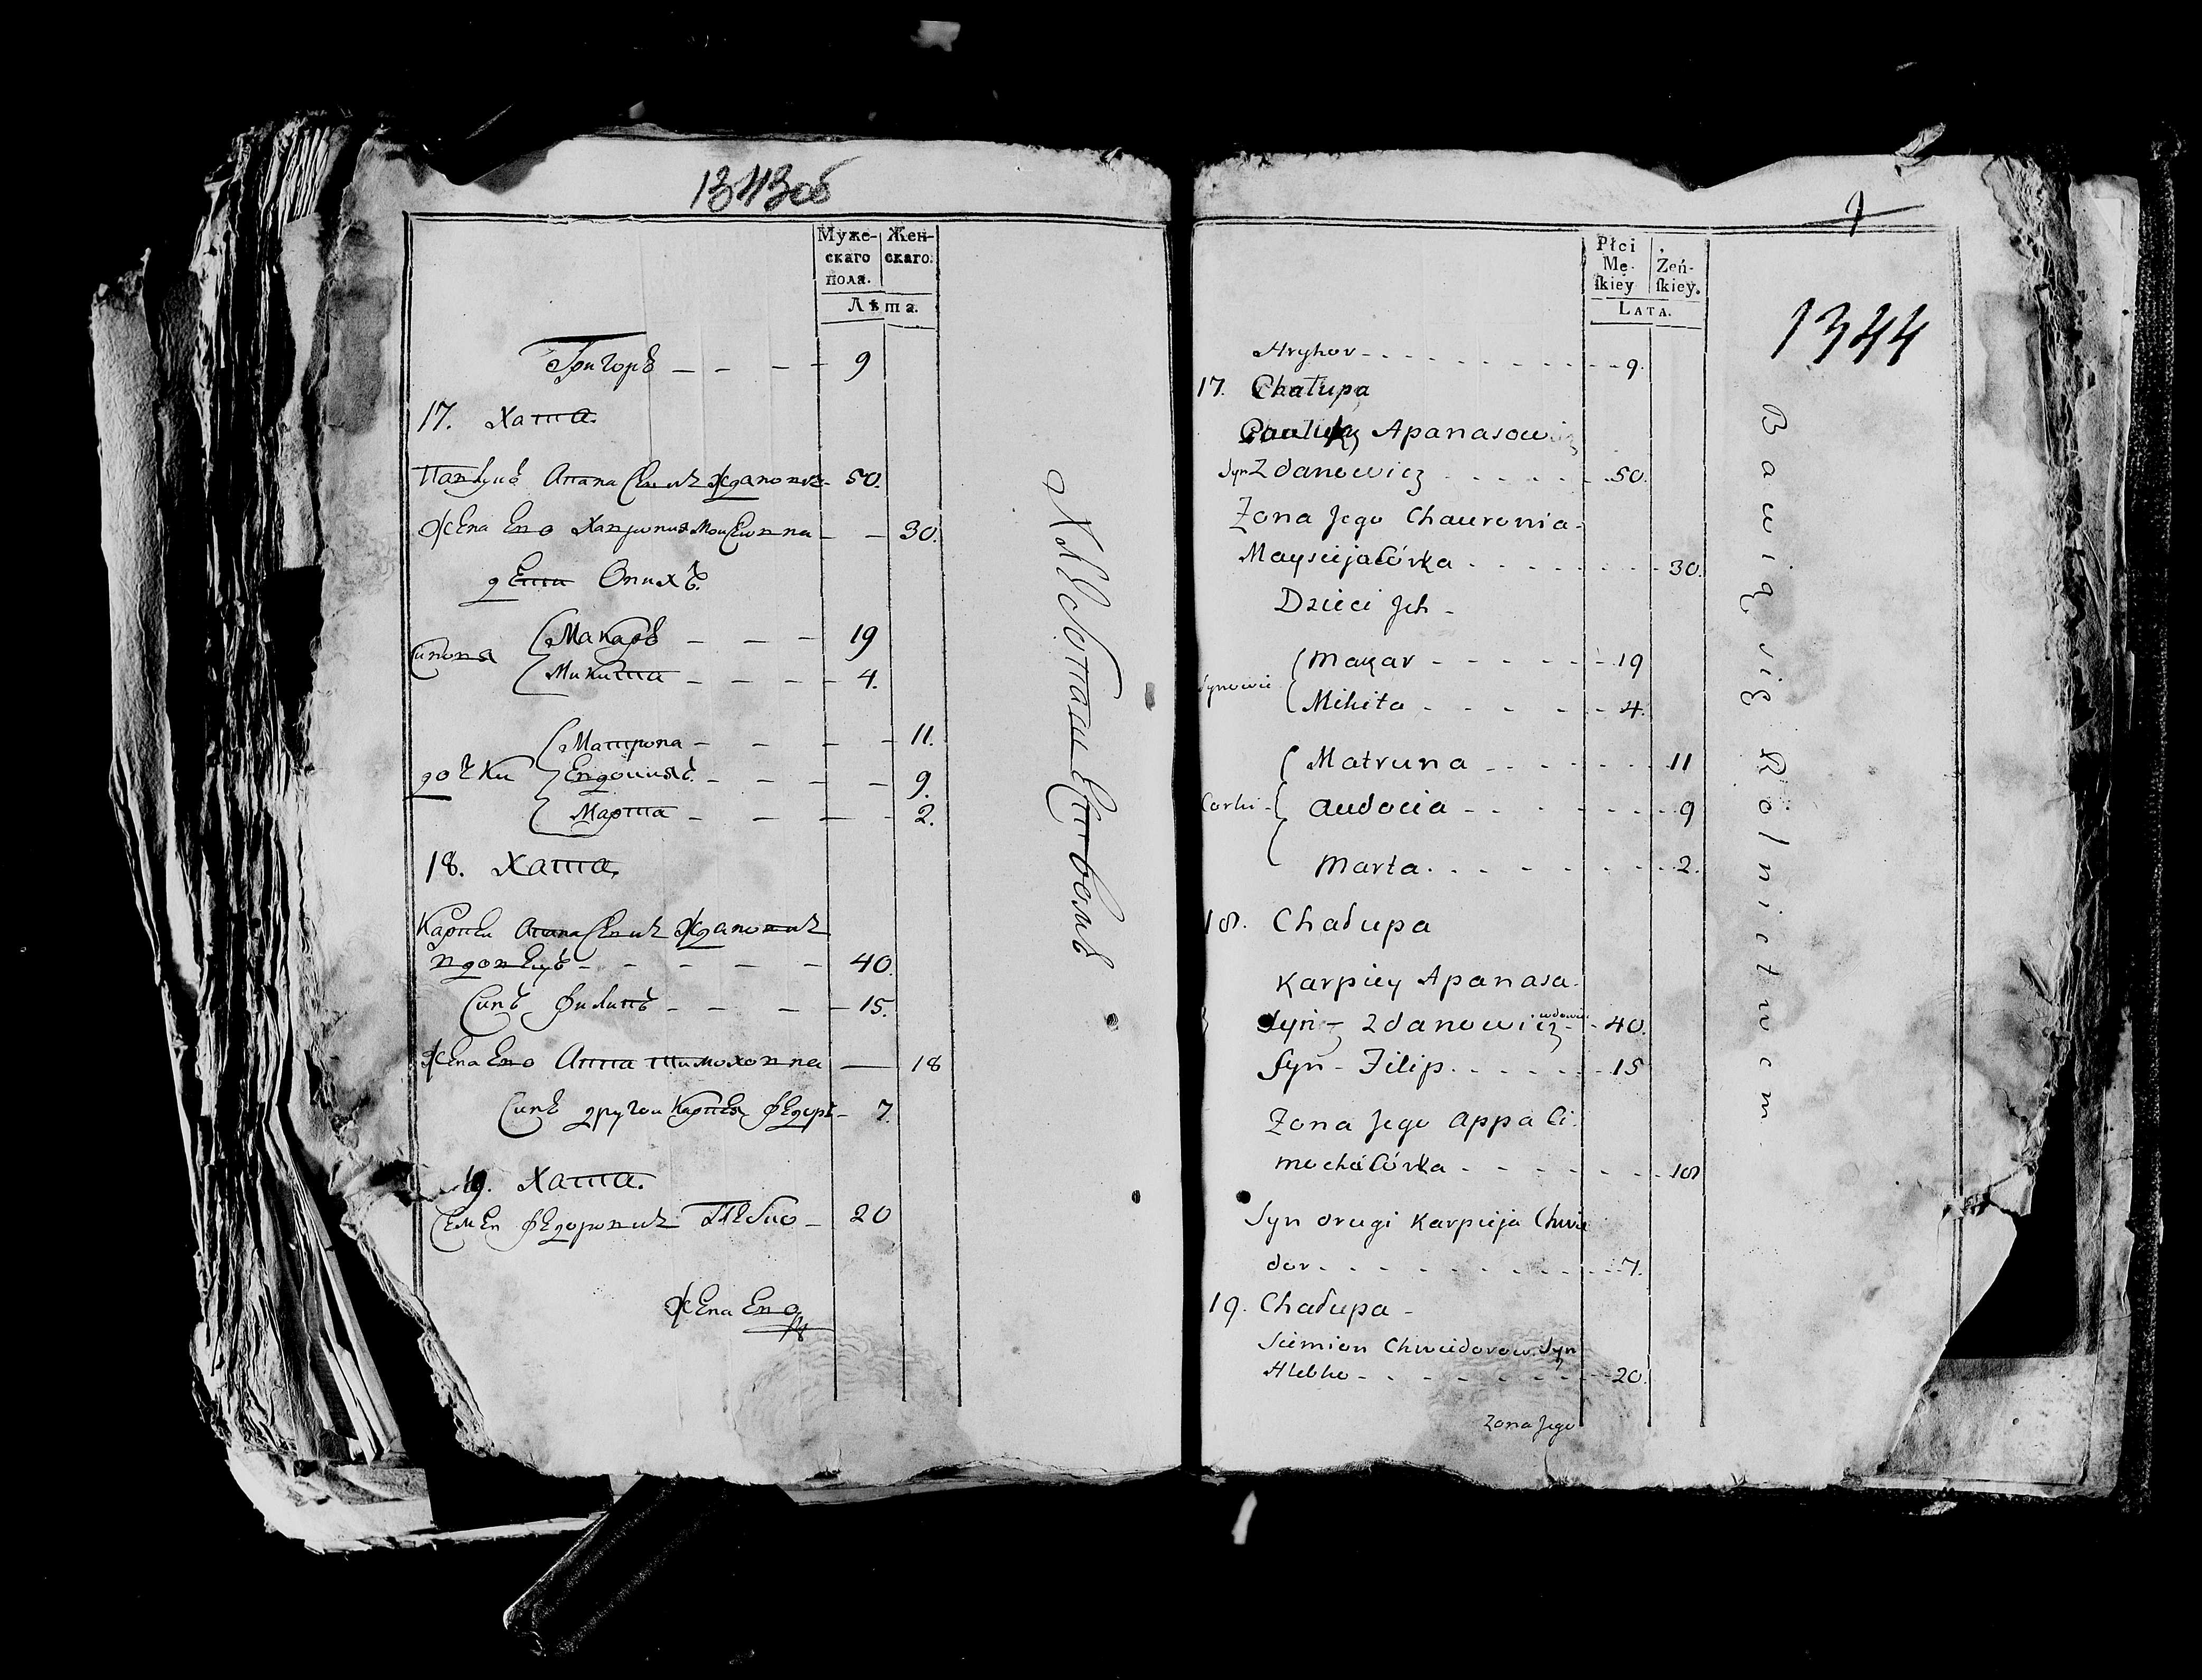 1343об
Муже-
скаго
пола.
Жен-
скаго.
Лѣта.
Григоръ 9
17. Хата.
Павлукъ Апанасевичъ Ждановичъ 50.
Жена Ево Хаврония Моисеивна 30.
дети Онихъ.
Синовя
Макаръ 19
Микита 4.
дочки
Матрона 11.
Евдокияхъ. 9.
Марта 2.
18. Хата.
Карпеи Апанасевичъ Ждановичъ
вдовецъ 40.
Синъ Филипъ 15.
Жена Ево Анна Тимоховна 18
Синъ другои Карпея Федоръ 7.
19. Хата.
Семен Федоровичъ Глебко 20
Жена Ево
Хлебопашеством
1344
Płci
Mę-
ſkiey
Żeń-
ſkiey.
LATA.
Hryhor 9.
17. Chałupa
Apanasowicz
Syn Zdanowicz 50.
Zona Jego Chauronia
Mayseja Córka 30.
Dzieci Jch
Synowie
Makar 19
Mikita 4.
Corki
Matruna 11
Audocia 9
Marta 2.
18. Chałupa
Karpiey Apanasa
Syn Zdanowicz wdowiec 40.
Syn Filip 15
Zona Jego Anna Ti
mocha Córka 18
Syn drugi Karpieja Chwie
dor 7.
19. Chałupa
Siemion Chwiedorow Syn
Hlebko 20.
Zona Jego
Bawią się Rolnictwem